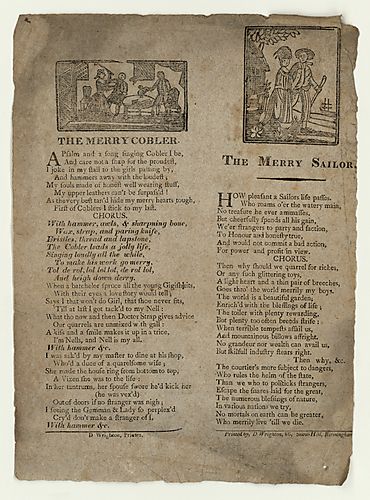 THE MERRY COBLER.
A Psalm and a song singing Cobler I be,
And care not a snap for the proudest,
I joke in my stall to the girls passing by,
And hammers away with the loudest;
My souls made of honest well wearing stuff,
My upper leathers can't be surpass'd
As the very best tan'd hide my merry hearts tough,
First of Coblers I stick to my last.
CHORUS.
With hammer, awls, & sharping bone,
Wax, strap, and paring knife,
Bristles, thread and lapstone,
The Cobler leads a jolly life,
Singing loudly all the while,
To make his work go merry.
Tol de rol, lol lol lol, de rol lol,
And heigh down derry.
When a batchelor spruce all the young Gigishlets,
With their eyes a love story would tell;
Says I that won't do Girl, that thou never fits,
Till at last I got tack'd to my Nell:
What the now and then Doctor Strap gives advice
Our quarrels are unmixed with gall:
A kiss and a smile makes it up in a trice,
I'm Nells, and Nell is my all.
With hammer &c.
I was ask'd by my master to dine at his shop,
Who'd a duce of a quarelsome wife;
She made the house ring from bottom to top,
A Vixen foe was to the life:
In her tantrums, her spouse swore he'd kick her
(he was vex'd)
Out of doors if no stranger was nigh;
I seeing the Gemman & Lady so perplex'd
Cry'd don't make a stranger of I.
With hammer &c.
D. Wrighton, Printer.
THE MERRY SAILOR.
HOW pleasant a Sailors life passes,
Who roams o'er the watery main,
No treasure he ever amasses.
But cheerfully spends all his gain.
We'er strangers to party and faction,
To Honour and honesty true,
And would not commit a bad action,
For power and profit in view.
CHORUS.
Then why should we quarrel for riches,
Or any such glittering toys,
A light heart and a thin pair of breeches,
Goes thro' the world merrily my boys.
The world is a beautiful garden,
Enrich'd with the blessings of life;
The toiler with plenty rewarding,
But plenty too often breeds strife:
When terrible tempests assail us,
And mountainous billows affright,
No grandeur nor wealth can avail us,
But skilful industry stears right.
Then why, &c.
The courtier's more subject to dangers,
Who rules the helm of the state,
Than we who to politicks strangers,
Escape the snares laid for the great,
The numerous blessings of nature,
In various nations we try,
No mortals on earth can be greater,
Who merrily live 'till we die.
Printed by, D. Wrighton, 86, Snow-Hill, Birmingham